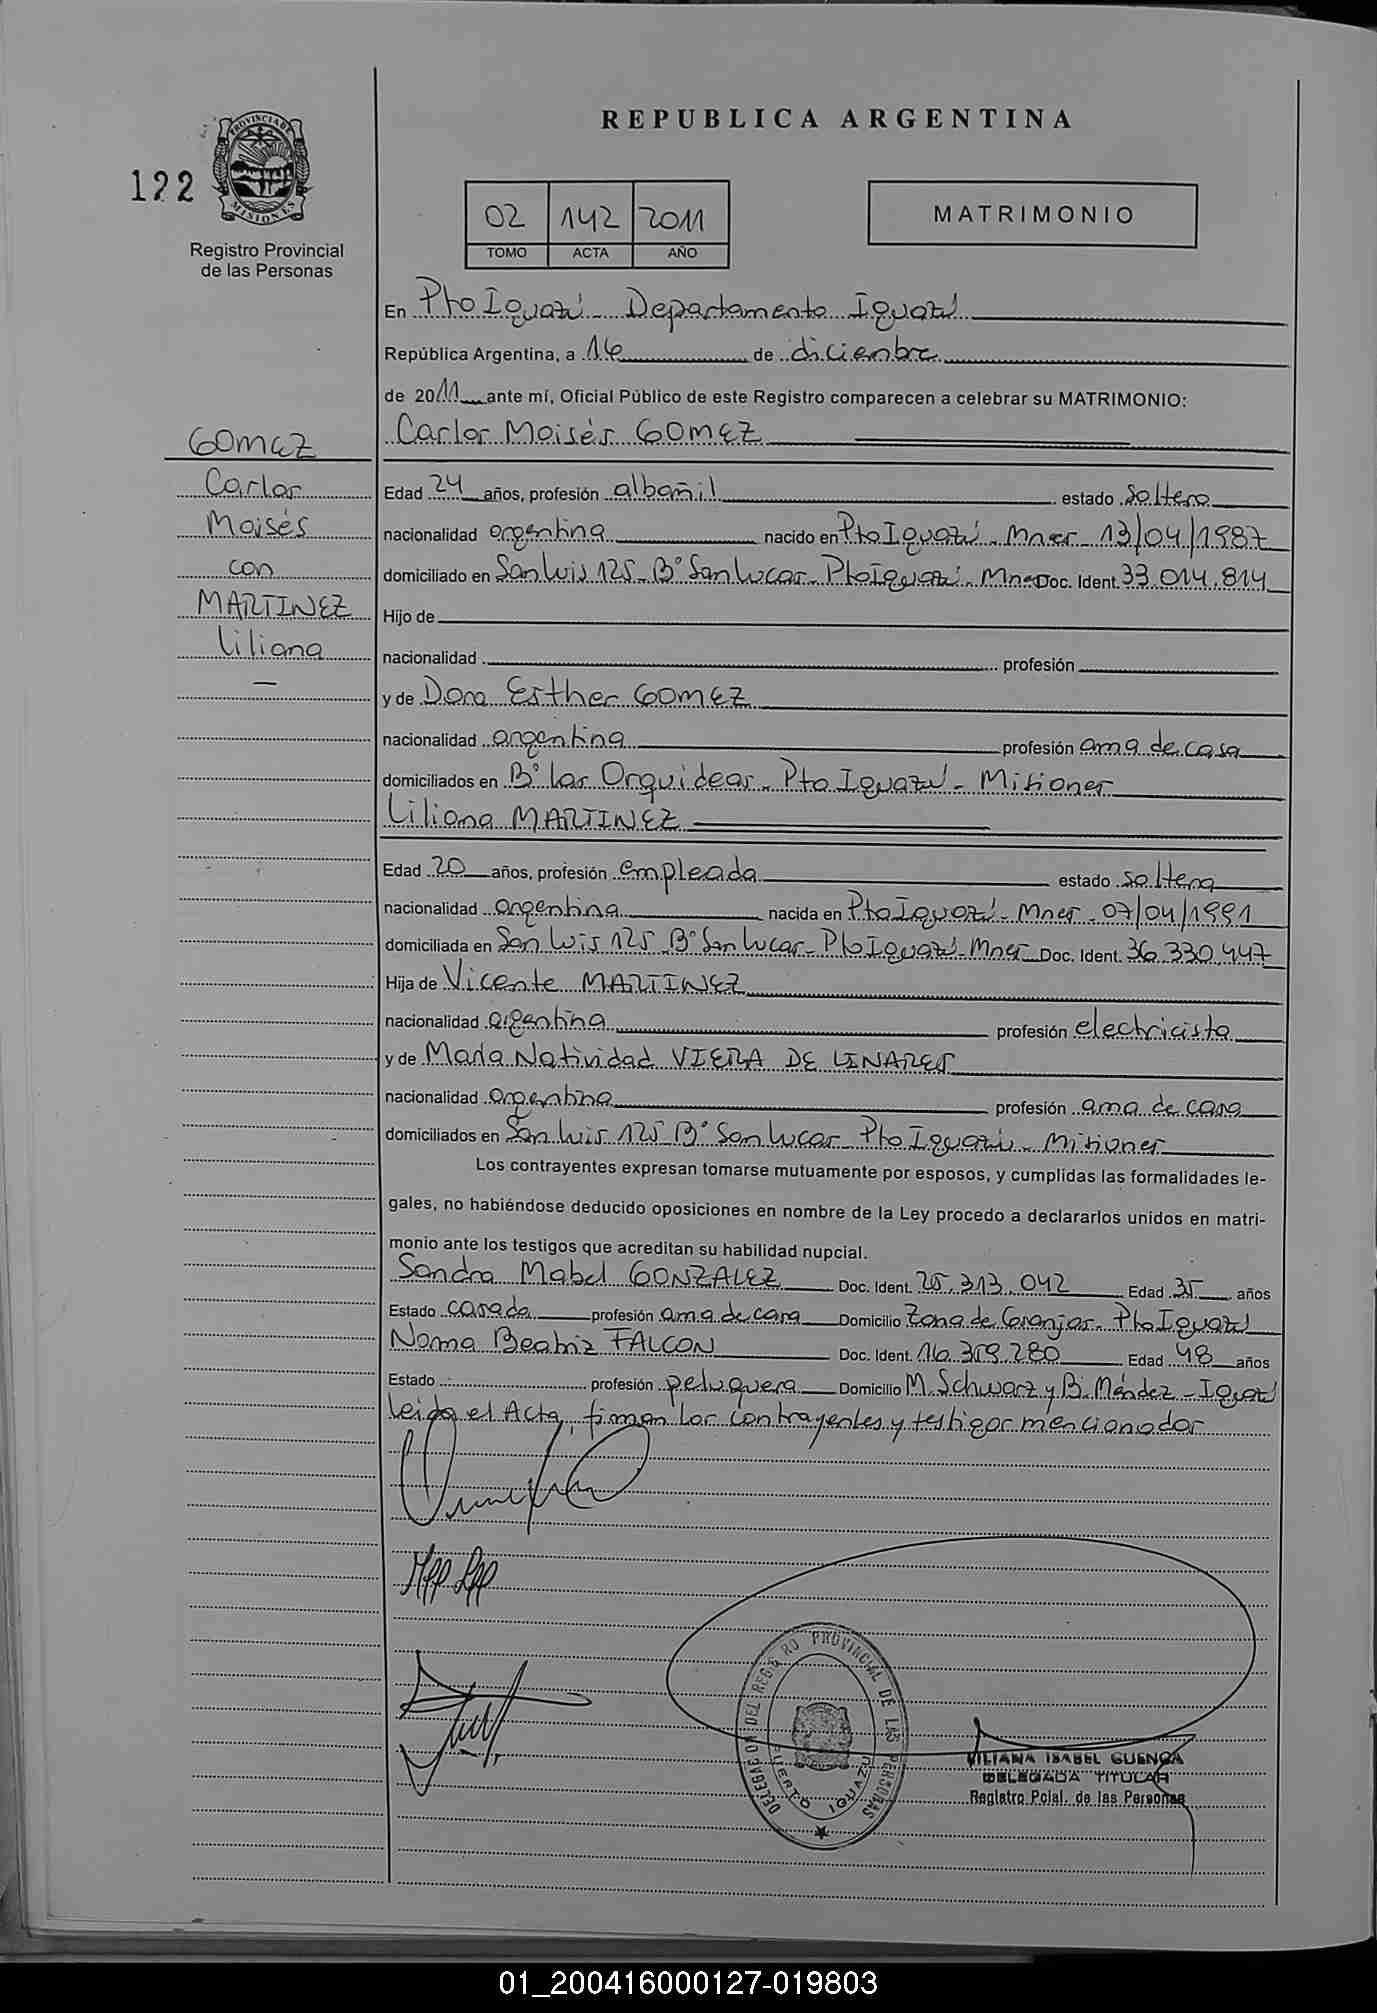 REPUBLICA ARGENTINA
122
PROVINCIA DE MISIONES
Registro Provincial
de las Personas
02 142 2011
TOMO ACTA AÑO
MATRIMONIO
En Pto Iguazú - Departamento Iguazú
República Argentina, a 16 de diciembre
de 2011 ante mí, Oficial Público de este Registro comparecen a celebrar su MATRIMONIO:
Carlos Moisés GOMEZ
GOMEZ
Carlos
Moisés
con
MARTINEZ
Liliana
—
Edad 24 años, profesión albañil estado soltero
nacionalidad argentina nacido en Pto Iguazú - Mnes - 13/04/1987
domiciliado en San Luis 125 - B° San Lucas - Pto Iguazú - Mnes Doc. Ident. 33.014.814
Hijo de
nacionalidad profesión
y de Dora Esther GOMEZ
nacionalidad argentina profesión ama de casa
domiciliados en B° las Orquideas - Pto Iguazú - Misiones
Liliana MARTINEZ
Edad 20 años, profesión empleada estado soltera
nacionalidad argentina nacida en Pto Iguazú - Mnes - 07/04/1991
domiciliada en San Luis 125 - B° San Lucas - Pto Iguazú - Mnes Doc. Ident. 36.330.447
Hija de Vicente MARTINEZ
nacionalidad argentina profesión electricista
y de María Natividad VIERA DE LINARES
nacionalidad argentina profesión ama de casa
domiciliados en San Luis 125 B° San Lucas - Pto Iguazú - Misiones
Los contrayentes expresan tomarse mutuamente por esposos, y cumplidas las formalidades le-
gales, no habiéndose deducido oposiciones en nombre de la Ley procedo a declararlos unidos en matri-
monio ante los testigos que acreditan su habilidad nupcial.
Sandra Mabel GONZALEZ Doc. Ident. 25.313.042 Edad 35 años
Estado casada profesión ama de casa Domicilio Zona de Granjas - Pto Iguazú
Norma Beatriz FALCON Doc. Ident. 16.359.280 Edad 48 años
Estado profesión peluquera Domicilio M. Schwarz y B. Méndez - Iguazú
Leida el Acta, firman los contrayentes y testigos mencionados
DELEGACION DEL REGISTRO PROVINCIAL DE LAS PERSONAS
PUERTO IGUAZU
LILIANA ISABEL CUENCA
DELEGADA TITULAR
Registro Pcial. de las Personas
01_200416000127-019803